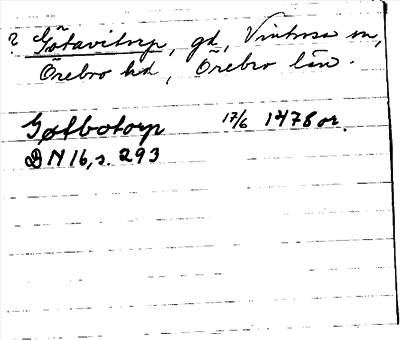 ? Götavitorp, gd, Vintrosa sn,
Örebro hd, Örebro län.
Gøtbotorp 17/6 1478 or.
DN 16, s. 293